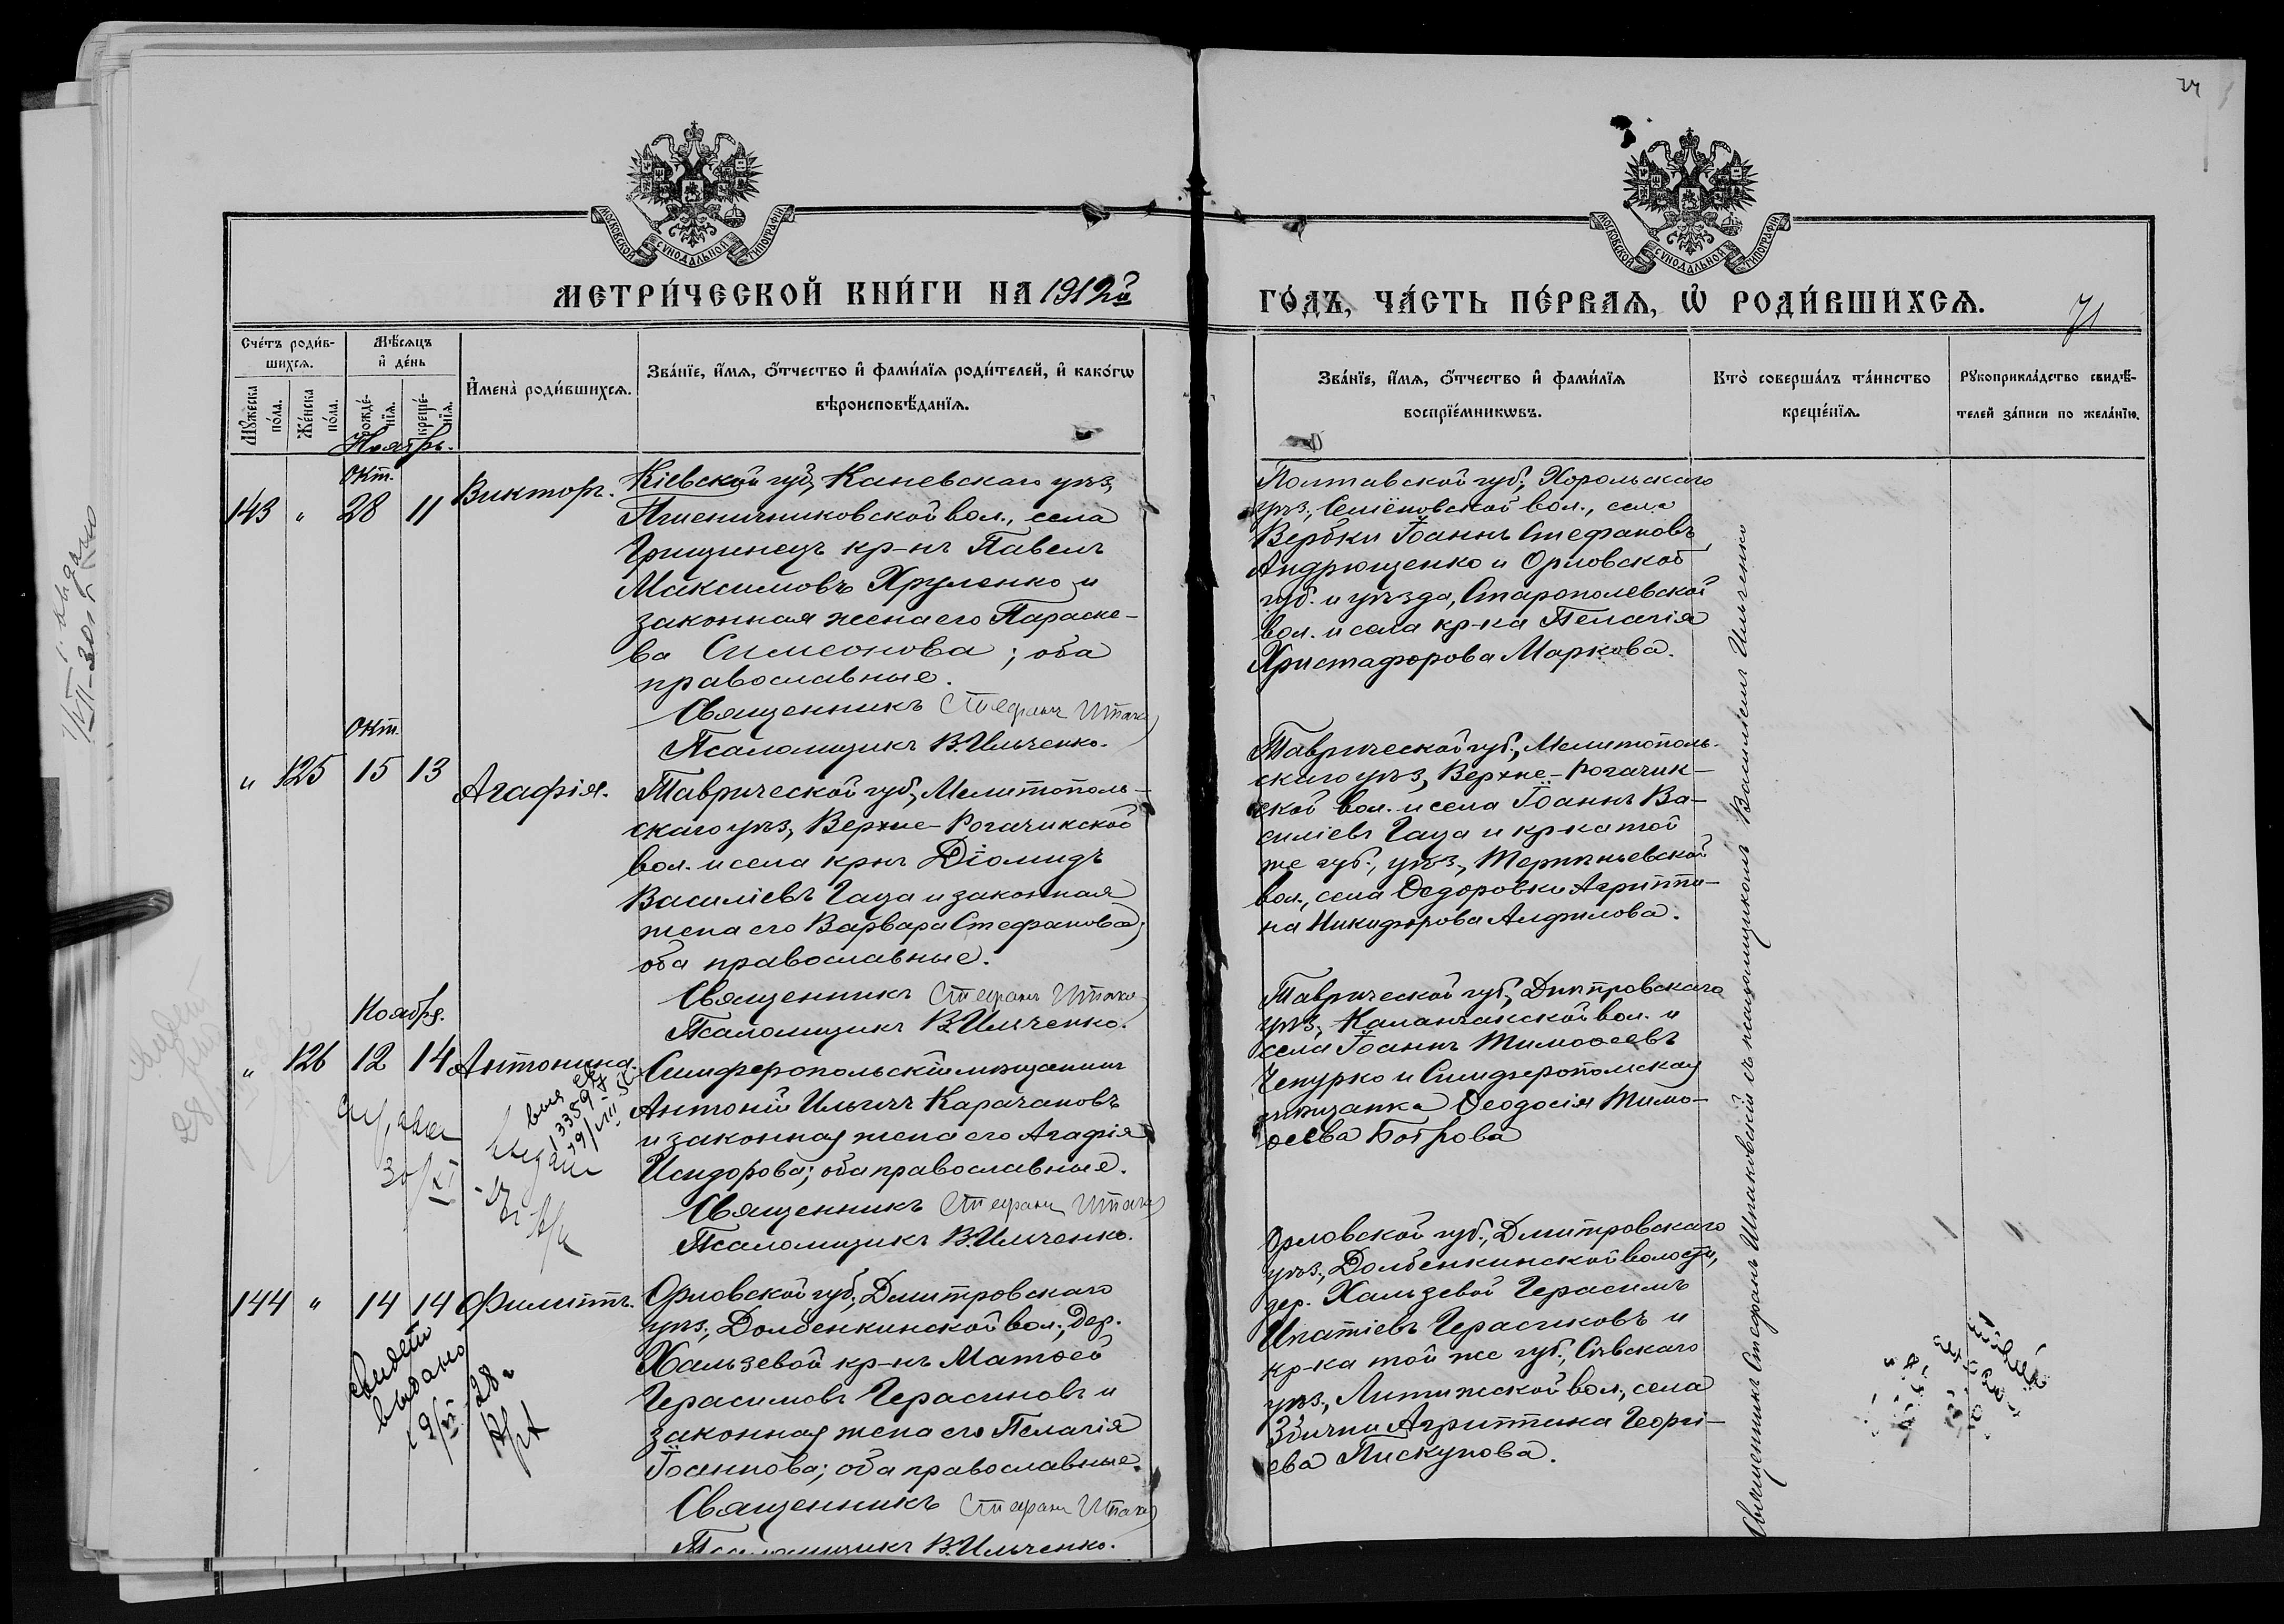 МОСКОВСКОЙ СѴНОДАЛЬНОЙ ТИПОГРАФІИ
МЕТРИ́ЧЕСКОЙ КНИ́ГИ НА 1912й
Сче́тъ роди́в-
шихсѧ.
Мꙋжеска по́ла.
Же́нска по́ла.
Мѣ́сѧцъ
и҆ де́нь
рожде́-
нїѧ.
креще́-
нїѧ.
И҆мена̀ роди́вшихсѧ.
Зва́нїе, и҆́мѧ, ѻ҆́тчество и҆ фами́лїѧ роди́телей, и҆ како́гѡ
вѣроисповѣ́данїѧ.
Ноябрь.
143 " Окт. 28 11 Викторъ.
Кіевской губ, Каневскаго уѣз,
Пшеничниковской вол., села
Грищинецъ кр-нъ Павелъ
Максимовъ Хруленко и
законная жена его Параске-
ва Симеонова; оба
православные.
Священникъ Стефанъ
Псаломщикъ В. Ильченко.
" 125 Окт. 15 13 Агафія.
Таврической губ, Мелитополь-
скаго уѣз, Верхне-Рогачикской
вол. и села крнъ Діомидъ
Василіевъ Гаца и законная
жена его Варвара Стефанова;
оба православные.
Священникъ Стефанъ
Псаломщикъ В. Ильченко.
Ноябр.
" 126 12 14 Антонина.
Симферопольскій мѣщанинъ
Антоній Ильичъ Карачановъ
и законная жена его Агафія
Исидорова; оба православные.
Священникъ Стефанъ
Псаломщикъ В. Ильченко.
144 " 14 14 Филиппъ.
Орловской губ, Дмитровскаго
уѣз, Долбенкинской вол., дер.
Хальзевой кр-нъ Матѳей
Герасимовъ Герасиковъ и
законная жена его Пелагія
Іоаннова; оба православные.
Священникъ Стефанъ
Псаломщикъ В. Ильченко.
выдано
МОСКОВСКОЙ СѴНОДАЛЬНОЙ ТИПОГРАФІИ
ГО́ДЪ, ЧА́СТЬ ПЕ́РВАѦ, Ѡ҆ РОДИ́ВШИХСѦ.
71
Зва́нїе, и҆́мѧ, ѻ҆́тчество и҆ фами́лїѧ
воспрїе́мникѡвъ.
Кто̀ соверша́лъ та́инство
креще́нїѧ.
Рꙋкоприкла́дство свидѣ́-
телей за́писи по жела́нїю.
Полтавской губ, Хорольскаго
уѣз., Семёновской вол., села
Вербки Іоаннъ Стефановъ
Андрющенко и Орловской
губ. и уѣзда, Старополевской
вол. и села кр-ка Пелагія
Христафорова Маркова.
Таврической губ, Мелитополь-
скаго уѣз, Верхне-Рогачик-
ской вол. и села Іоаннъ Ва-
силіевъ Гаца и кр-ка той
же губ., уѣз,
вол., села Ѳедоровки Агриппи-
на Никифорова Алфилова.
Таврической губ, Днѣпровскаго
уѣз, Каланчакской вол. и
села Іоаннъ Тимоѳеевъ
Чепурко и Симферопольская
мѣщанка Ѳеодосія Тимо-
ѳеева Боброва
Орловской губ., Дмитровскаго
уѣз., Долбенкинской волости,
дер. Хальзевой Герасимъ
Ипатіевъ Герасиковъ и
кр-ка той же губ., Сѣвскаго
уѣз., Литижской вол., села
Агриппина Георгі-
ева Пискунова.
Священникъ Стефанъ Шпаковскій съ псаломщикомъ Василіемъ Ильченко